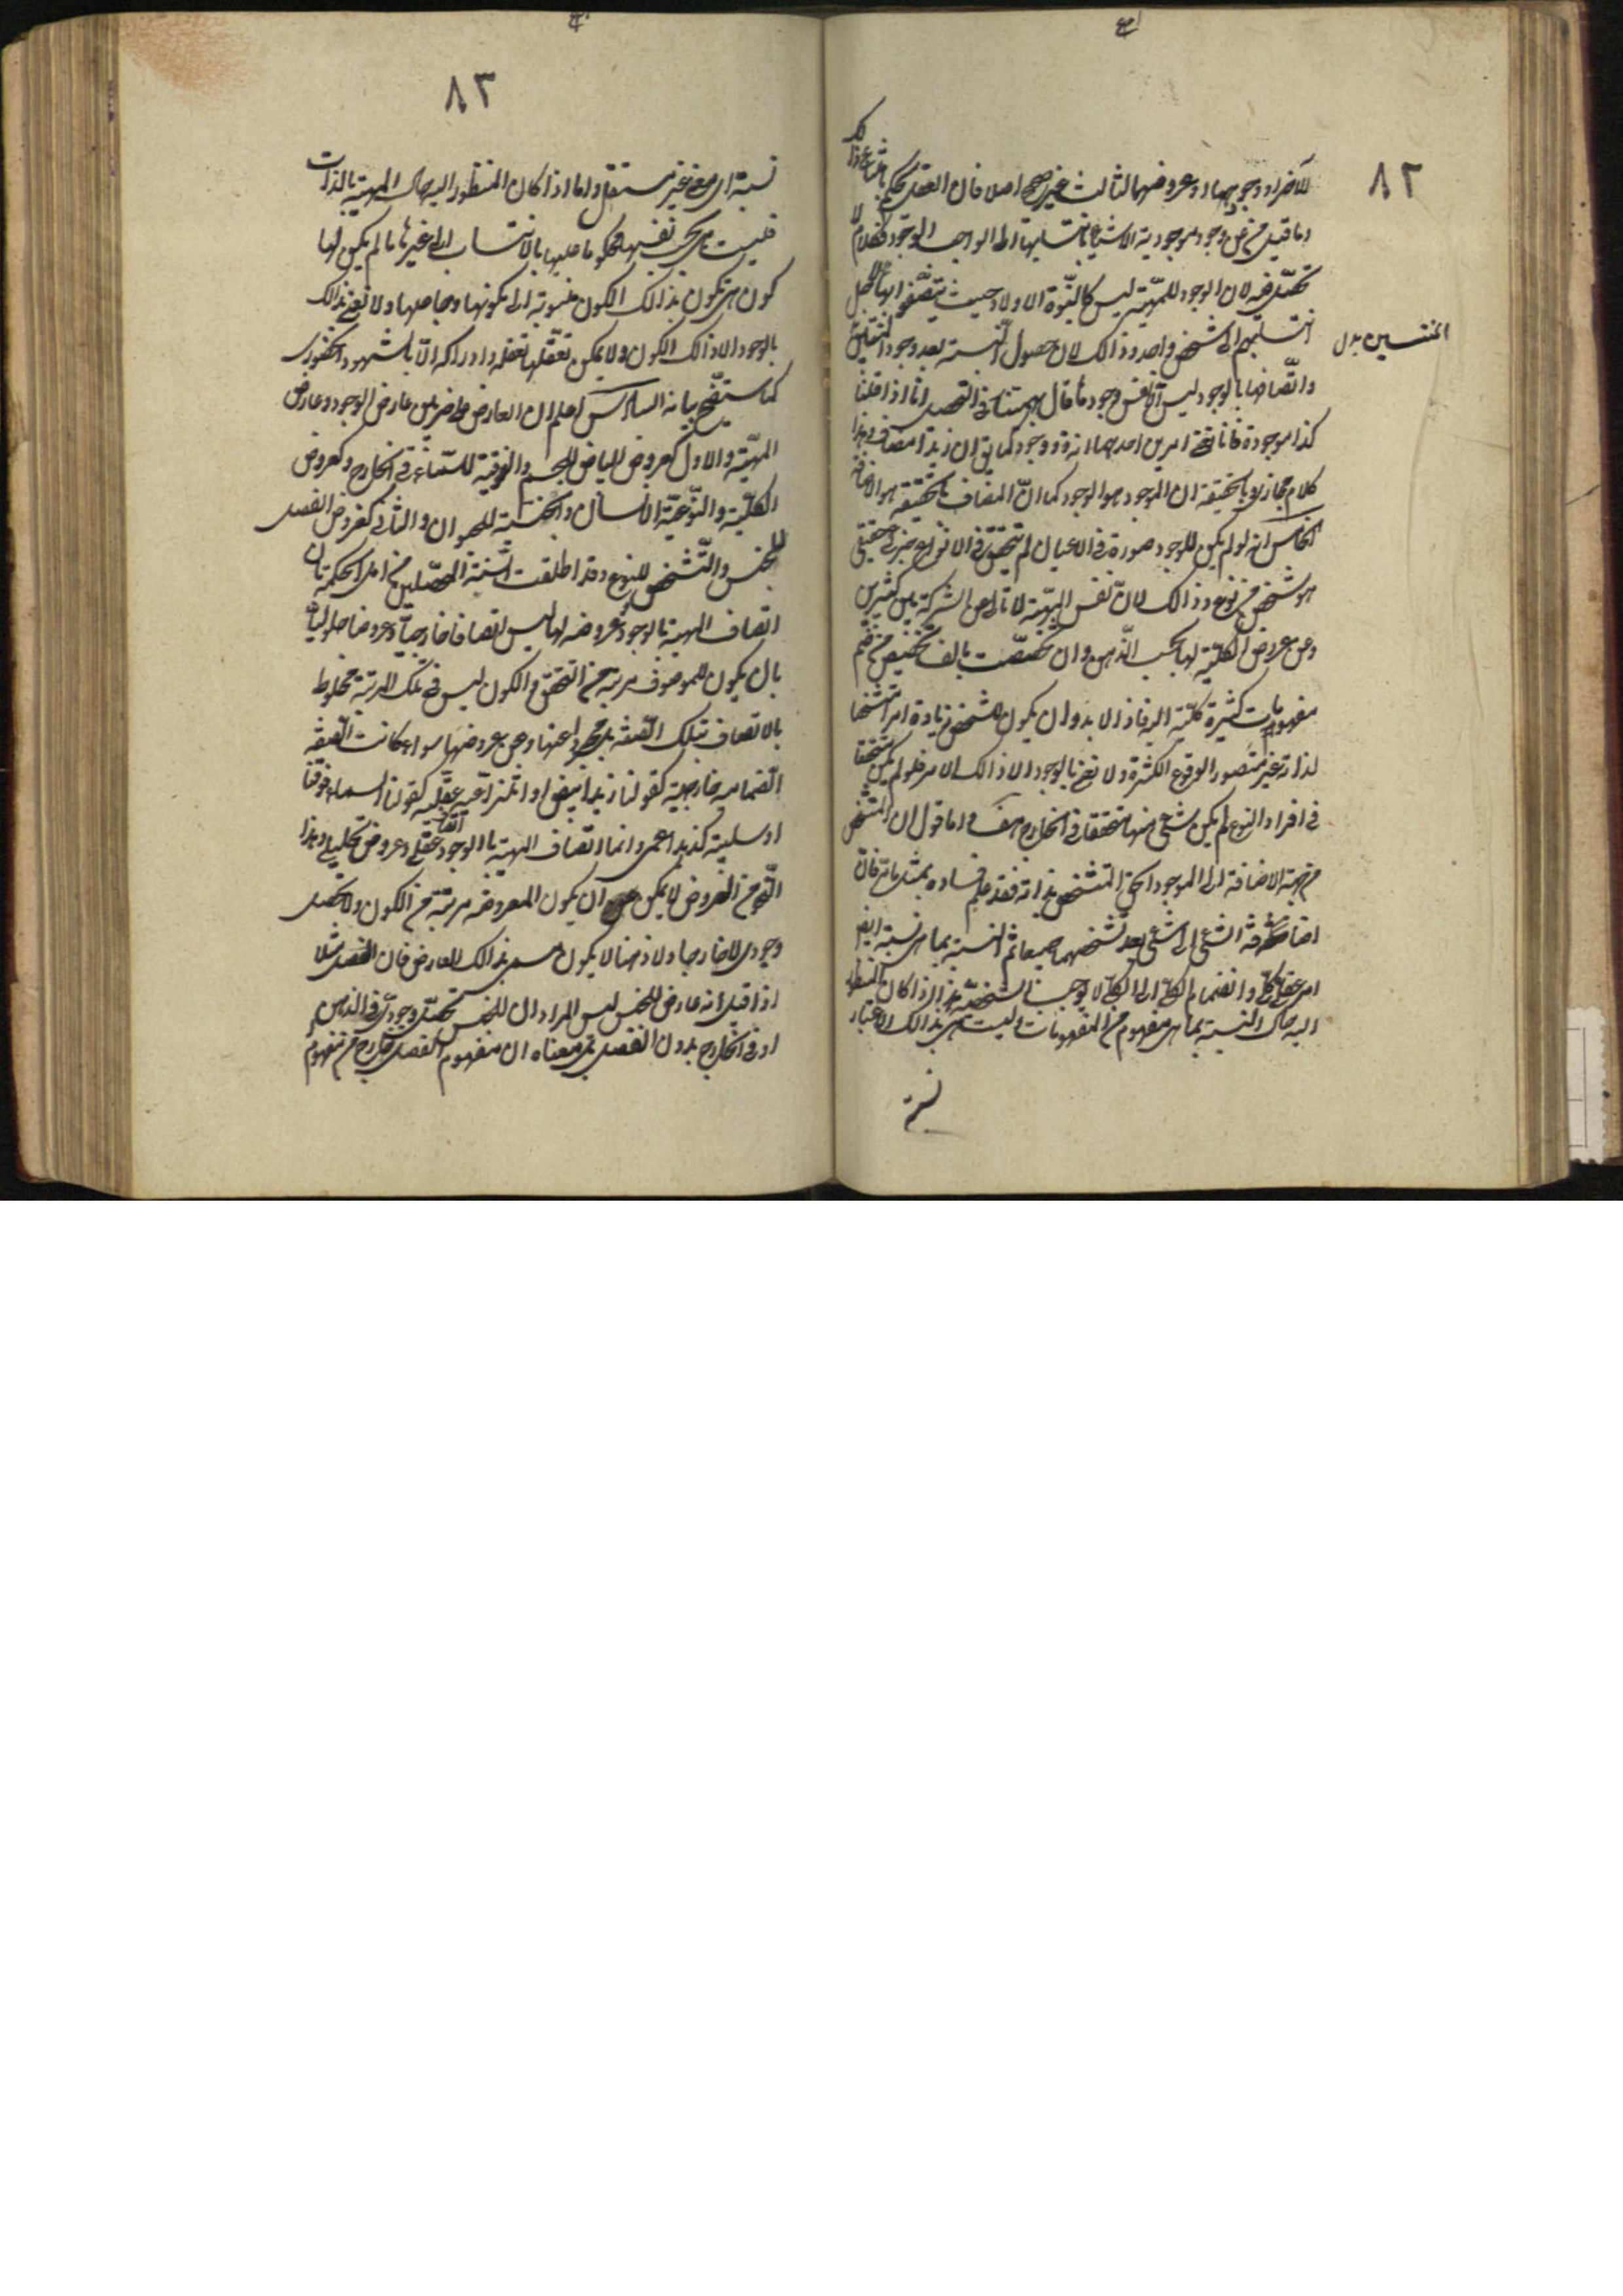 ٨٢
للآخر او وجودهما او عروضهما لثالث غير صحيح اصلا فان العقل يحكم بامتناع ذلك
وما قيل من ان موجودية الاشياء بانتسابها الى الواجب الوجود فكلام لا
تحصيل فيه لان الوجود للمهية ليس كالبنوة للاولاد حيث يتصفوا بها لاجل
انتسابهم الى شخص واحد وذالك لان حصول النسبة بعد وجود المنتسبين
المنتسبين بدل
واتصافها بالوجود ليس الا نفس وجودها قال بهمنيار في التحصيل انا اذا قلنا
كذا موجود فانا نعني امرين احدهما انه ذو وجود كما يق ان زيدا مضاف وهذا
كلام مجازي وبالحقيقة ان الموجود هو الوجود كما ان المضاف بالحقيقة هو الاضافة
الخامس انه لو لم يكن للوجود صورة في الاعيان لم يتحقق في الانواع جزئي حقيقي
هو شخص من نوع وذالك لان نفس المهية لا تأبى عن الشركة بين كثيرين
وعن عروض الكلية لها بحسب الذهن وان تخصصت بالف تخصيص من ضم
مفهومات كثيرة كلية اليه فاذن لا بد وان يكون للشخص زيادة امر متشخصا
لذاته غير متصور الوقوع للكثرة ولا نعني بالوجود الا ذالك الامر فلو لم يكن متحققا
في افراد النوع لم يكن شيء منها متحققا في الخارج هف واما قول ان التشخص
من جهة الاضافة الى الموجود الحق المتشخص بذاته فقد علم فساده بمثل ما مر فان
اضافة الشيء الى شيء بعد تشخصهما جميعا ثم النسبة بما هي نسبة ايض
امر عقلي كلي وانضمام الكلي الى الكلي لا يوجب الشخصية هذا اذا كان المنظور
اليه حال النسبة بما هي مفهوم من المفهومات وليست هي بذالك الاعتبار
نسبة
٨٣
نسبة اى معنى غير مستقل واما اذا كان المنظور اليه حال المهية بالذات
فليست هي بحسب نفسها محكوما عليها بالانتساب الى غيرها ما لم يكن لها
كون هي تكون بذالك الكون منسوبة الى مكونها وجاعلها ولا نعني بذالك
بالوجود الا ذالك الكون ولا يمكن تعقله وادراكه الا بالشهود الحضوري
كما سيتضح بيانه السادس اعلم ان العارض على ضربين عارض الوجود وعارض
المهية والاول كعروض البياض للجسم والفوقية للسماء في الخارج وكعروض
الكلية والنوعية للانسان والجنسية للحيوان والثاني كعروض الفصل
للجنس والتشخص للنوع وقد اطلقت السنة المحصلين من اهل الحكمة بان
اتصاف المهية بالوجود وعروضه لها ليس اتصافا خارجيا وعروضا حلوليا
بان يكون للموصوف مرتبة من التحقق والكون ليس في تلك المرتبة مخلوط
بالاتصاف بتلك الصفة بل مجردا عنها وعن عروضها سواء كانت الصفة
انضمامية خارجية كقولنا زيد ابيض او انتزاعية عقلية كقولنا السماء فوقنا
او سلبية كزيد اعمى وانما اتصاف المهية بالوجود اتصاف عقلي وعروض تحليلي وهذا
النحو من العروض لا يمكن ان يكون لمعروضه مرتبة من الكون ولا تحصل
وجودي لا خارجا ولا ذهنا لا يكون المسمى بذالك العارض فان الفصل مثلا
اذا قيل انه عارض للجنس ليس المراد ان للجنس تحصلا وجوديا في الذهن
او في الخارج بدون الفصل بل معناه ان مفهوم الفصل خارج من مفهوم